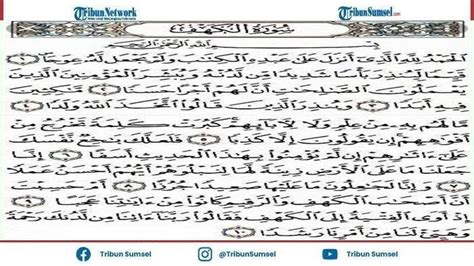 Tribun Network
Tribun Sumsel.com
سُورَةُ الْكَهْفِ
بِسْمِ اللَّهِ الرَّحْمَٰنِ الرَّحِيمِ
الْحَمْدُ لِلَّهِ الَّذِي أَنزَلَ عَلَىٰ عَبْدِهِ الْكِتَابَ وَلَمْ يَجْعَل لَّهُ عِوَجًا ۝١
قَيِّمًا لِّيُنذِرَ بَأْسًا شَدِيدًا مِّن لَّدُنْهُ وَيُبَشِّرَ الْمُؤْمِنِينَ الَّذِينَ
يَعْمَلُونَ الصَّالِحَاتِ أَنَّ لَهُمْ أَجْرًا حَسَنًا ۝٢ مَّاكِثِينَ
فِيهِ أَبَدًا ۝٣ وَيُنذِرَ الَّذِينَ قَالُوا اتَّخَذَ اللَّهُ وَلَدًا ۝٤
مَّا لَهُم بِهِ مِنْ عِلْمٍ وَلَا لِآبَائِهِمْ كَبُرَتْ كَلِمَةً تَخْرُجُ مِنْ
أَفْوَاهِهِمْ إِن يَقُولُونَ إِلَّا كَذِبًا ۝٥ فَلَعَلَّكَ بَاخِعٌ نَّفْسَكَ
عَلَىٰ آثَارِهِمْ إِن لَّمْ يُؤْمِنُوا بِهَٰذَا الْحَدِيثِ أَسَفًا ۝٦ إِنَّا
جَعَلْنَا مَا عَلَى الْأَرْضِ زِينَةً لَّهَا لِنَبْلُوَهُمْ أَيُّهُمْ أَحْسَنُ عَمَلًا
۝٧ وَإِنَّا لَجَاعِلُونَ مَا عَلَيْهَا صَعِيدًا جُرُزًا ۝٨ أَمْ حَسِبْتَ
أَنَّ أَصْحَابَ الْكَهْفِ وَالرَّقِيمِ كَانُوا مِنْ آيَاتِنَا عَجَبًا ۝٩
إِذْ أَوَى الْفِتْيَةُ إِلَى الْكَهْفِ فَقَالُوا رَبَّنَا آتِنَا مِن لَّدُنكَ رَحْمَةً
وَهَيِّئْ لَنَا مِنْ أَمْرِنَا رَشَدًا ۝١٠
Tribun Sumsel
@TribunSumsel
Tribun Sumsel